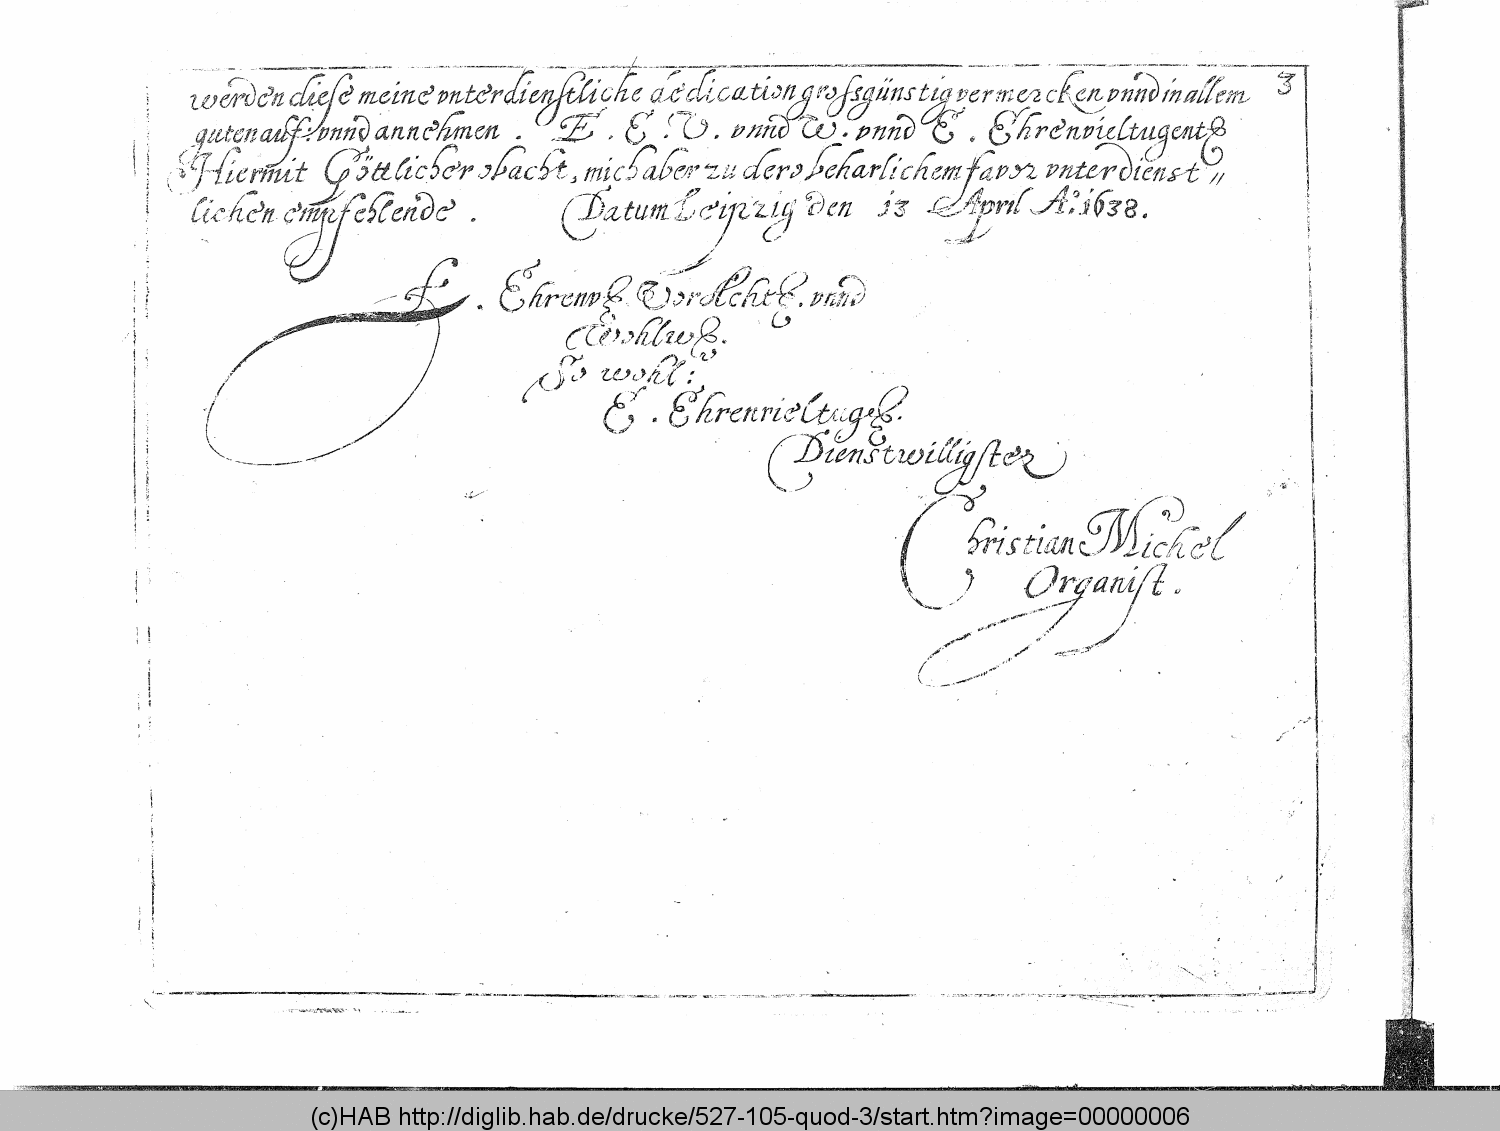 3
werden diese meine vnterdienstliche dedication grossgünstig vermercken vnnd in allem
guten auff: vnnd annehmen . E . E . V . vnnd W . vnnd E . Ehrenvieltugent
Hiermit Göttlicher obacht, mich aber zu dero beharlichem favor vnterdienst〃
lichen empfehlende . Datum Leipzig den 13 April A:º 1638.
E . Ehrenv . Vor Acht . vnnd
Wohlw .
So wohl :
E . Ehrenvieltuge .
Dienstwilligster
Christian Michel
Organist .
(c)HAB http://diglib.hab.de/drucke/527-105-quod-3/start.htm?image=00000006